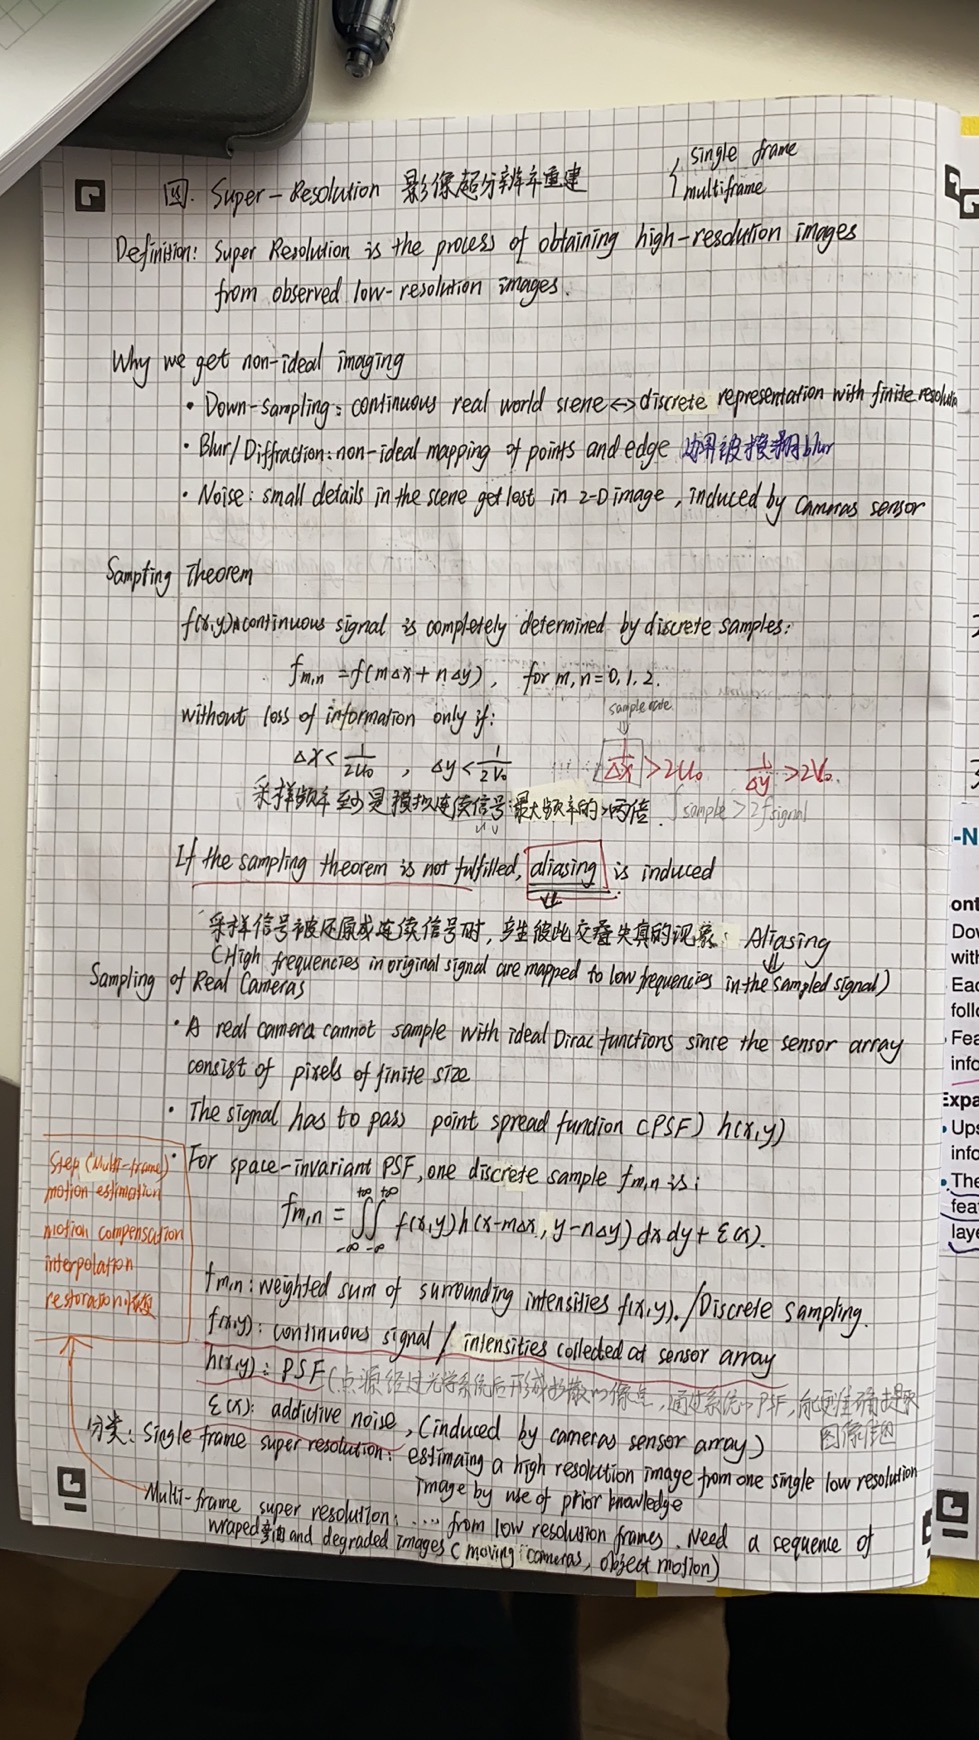 四. Super-Resolution 影像超分辨率重建 { single frame
multiframe
Definition: Super Resolution is the process of obtaining high-resolution images
from observed low-resolution images.
Why we get non-ideal imaging
• Down-Sampling: continuous real world scene ↔ discrete representation with finite resolution
• Blur/Diffraction: non-ideal mapping of points and edge 边界被模糊 blur
• Noise: small details in the scene get lost in 2-D image, induced by cameras sensor
Sampling Theorem
f(x,y) continuous signal is completely determined by discrete samples:
fm,n = f(mΔx + nΔy), for m,n = 0,1,2.
sample rate
without loss of information only if:
Δx < 1/2U₀ , Δy < 1/2V₀ 1/Δx > 2U₀ 1/Δy > 2V₀.
采样频率至少是模拟连续信号最大频率的两倍. fsample > 2fsignal
If the sampling theorem is not fulfilled, aliasing is induced
采样信号被还原成连续信号时,产生彼此交叠失真的现象: Aliasing
(High frequencies in original signal are mapped to low frequencies in the sampled signal)
Sampling of Real Cameras
• A real camera cannot sample with ideal Dirac functions since the sensor array
consist of pixels of finite size
• The signal has to pass point spread function (PSF) h(x,y)
• For space-invariant PSF, one discrete sample fm,n is:
fm,n = ∫∫ f(x,y) h(x-mΔx, y-nΔy) dx dy + ε(x).
+∞ +∞
-∞ -∞
Step (Multi-frame)
motion estimation
motion compensation
interpolation
restoration 恢复
fm,n: weighted sum of surrounding intensities f(x,y). / Discrete sampling.
f(x,y): continuous signal / intensities collected at sensor array
h(x,y): PSF (点源经过光学系统后形成扩散的像点, 通过系统的PSF, 能更准确提取
图像信息
ε(x): addictive noise, (induced by cameras sensor array)
分类: Single frame super resolution: estimaing a high resolution image from one single low resolution
image by use of prior knowledge
Multi-frame super resolution: .... from low resolution frames. Need a sequence of
wraped and degraded images (moving cameras, object motion)
-N
ont
Dov
with
Eac
follo
Fea
info
Expa
• Ups
info
• The
feat
laye